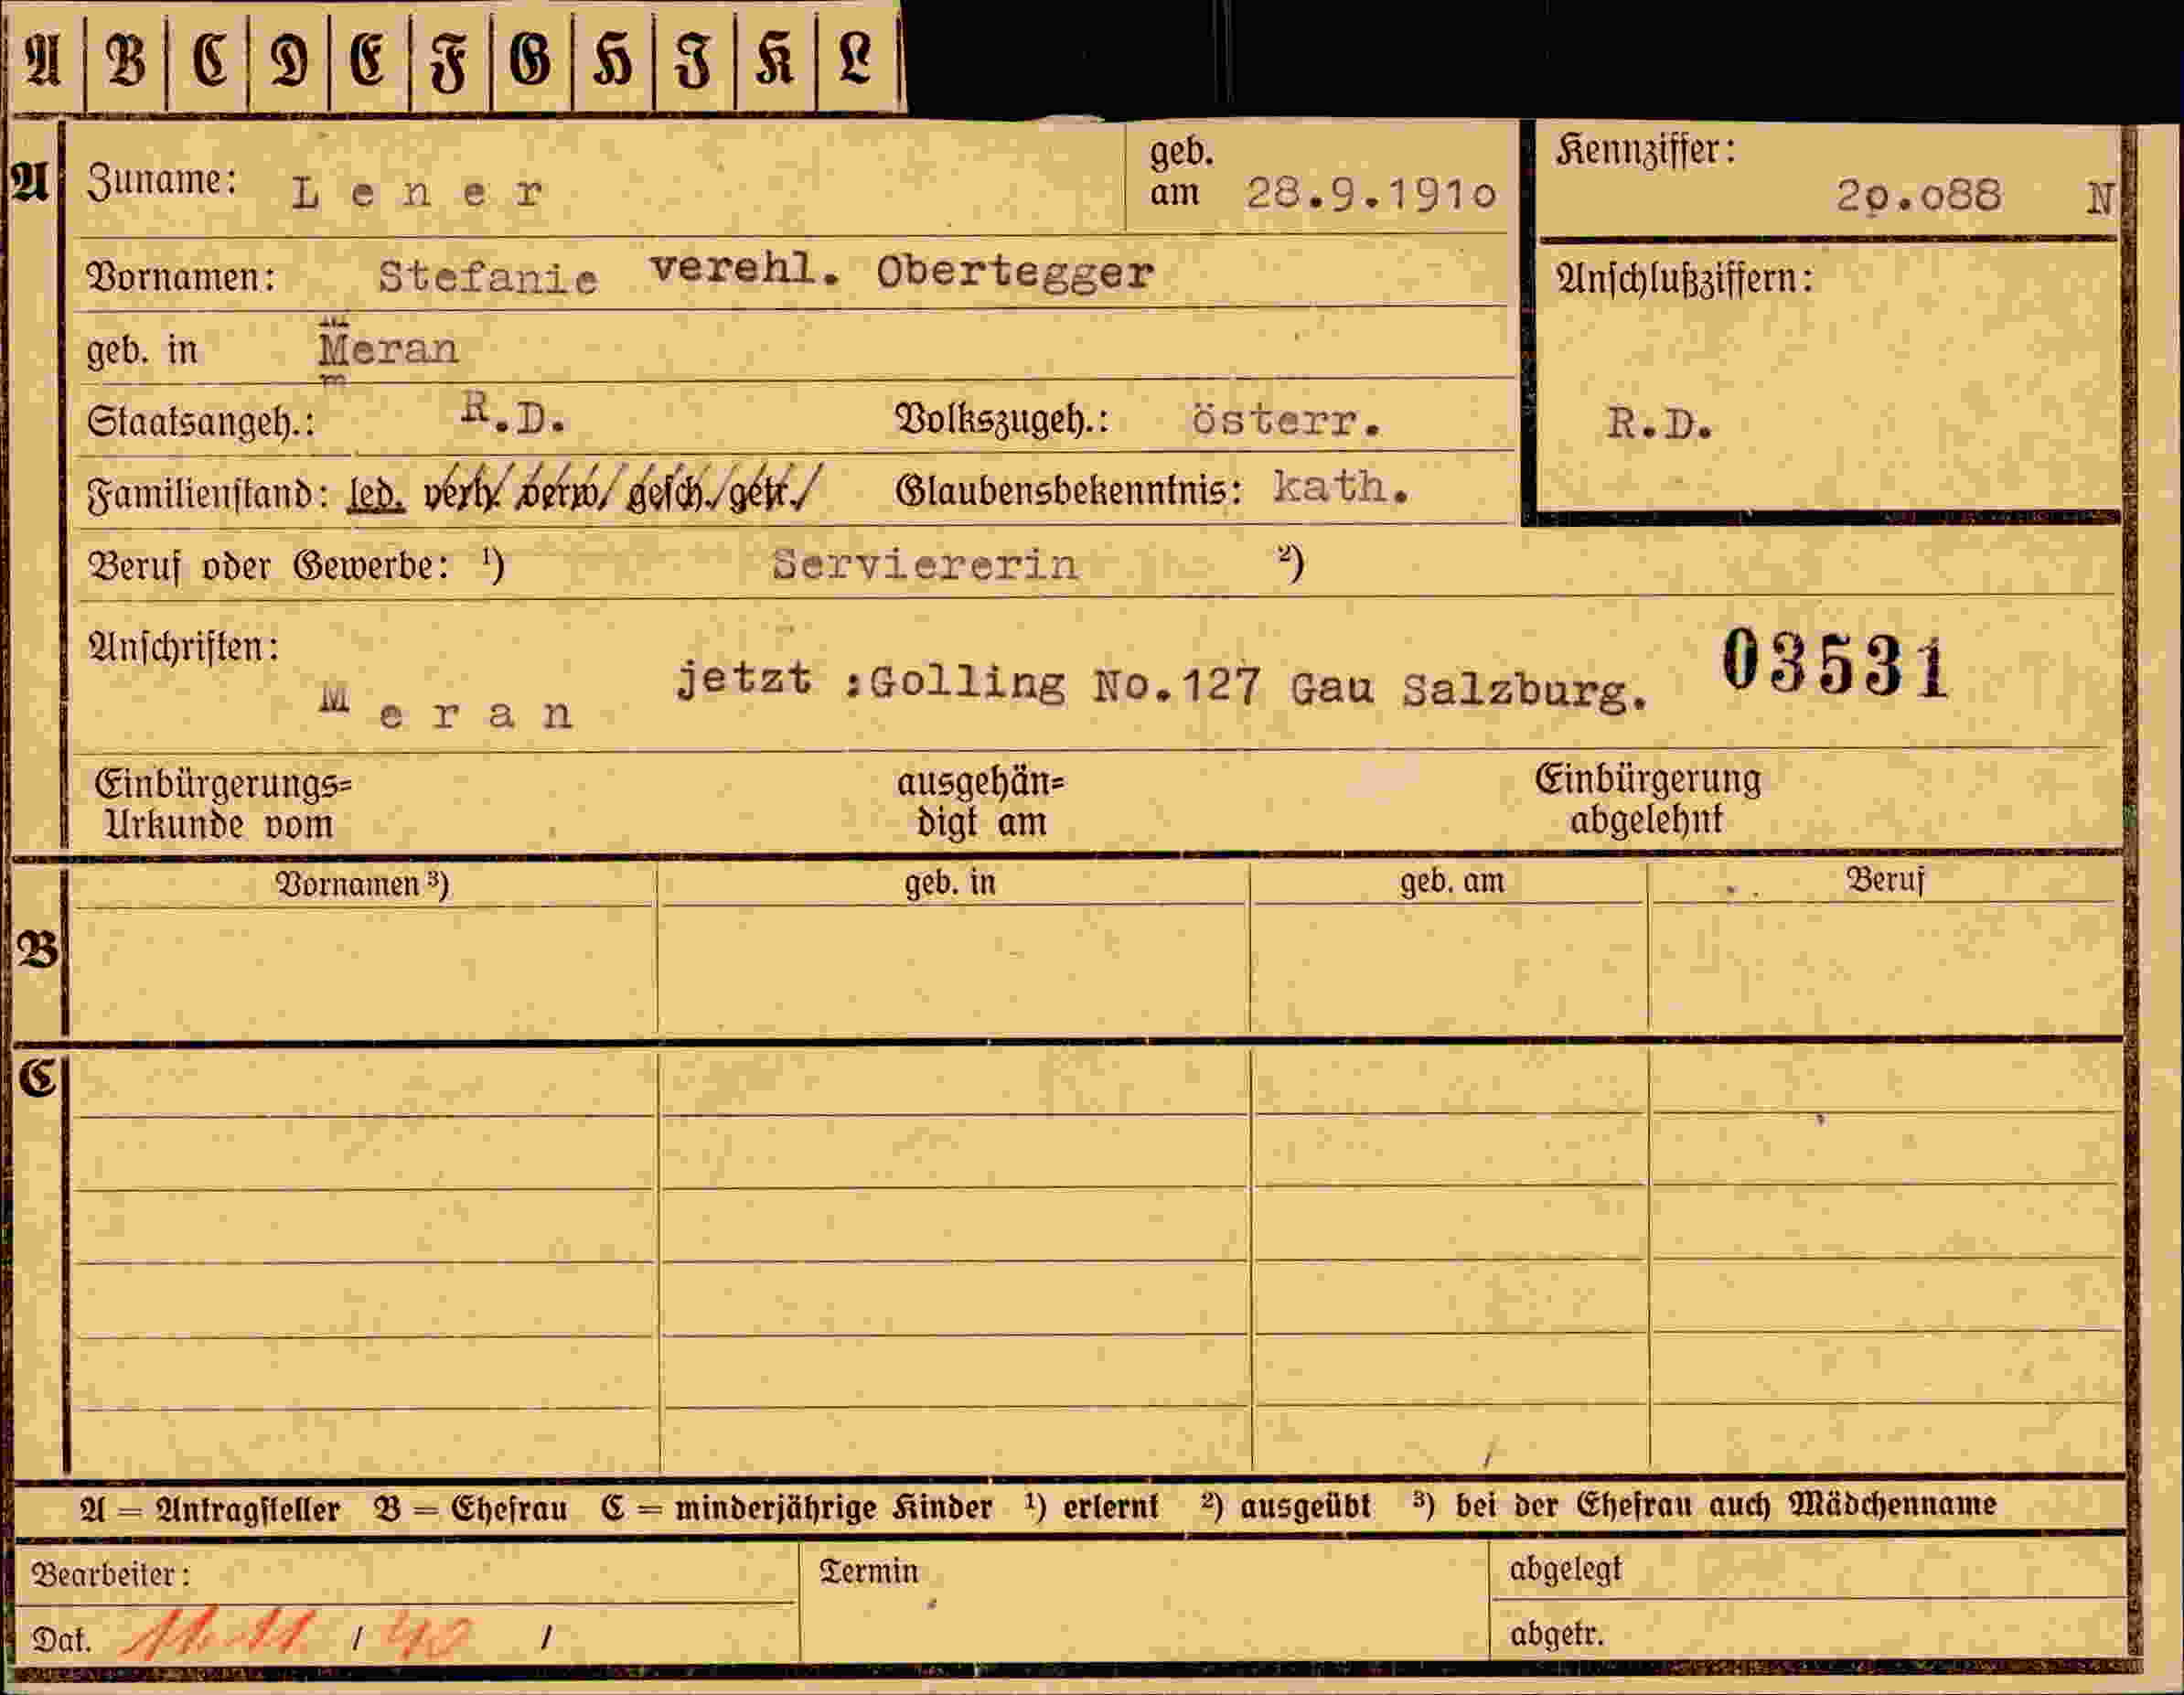 A B C D E F G H I K L
A Zuname: Lener geb. am 28.9.1910 Kennziffer: 20.088 N
Vornamen: Stefanie verehl. Obertegger Anschlußziffern:
geb. in Meran
Staatsangeh.: R.D. Volkszugeh.: österr. R.D.
Familienstand: led. verh. verw. gesch. getr. Glaubensbekenntnis: kath.
Beruf oder Gewerbe: ¹) Serviererin ²)
Anschriften: 03531
Meran jetzt :Golling No.127 Gau Salzburg.
Einbürgerungs= ausgehän= Einbürgerung
Urkunde vom digt am abgelehnt
Vornamen ³) geb. in geb. am Beruf
B
C
A = Antragsteller B = Ehefrau C = minderjährige Kinder ¹) erlernt ²) ausgeübt ³) bei der Ehefrau auch Mädchenname
Bearbeiter: Termin abgelegt
Dat. 11.11. / 40 / abgetr.